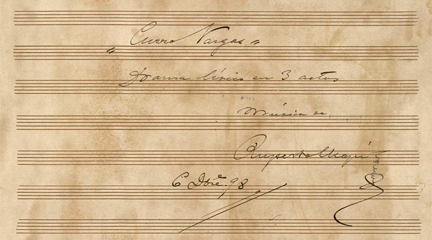 „ Curro Vargas „
Drama lírico en 3 actos
Música de
Ruperto Chapí
6 Dbre 98